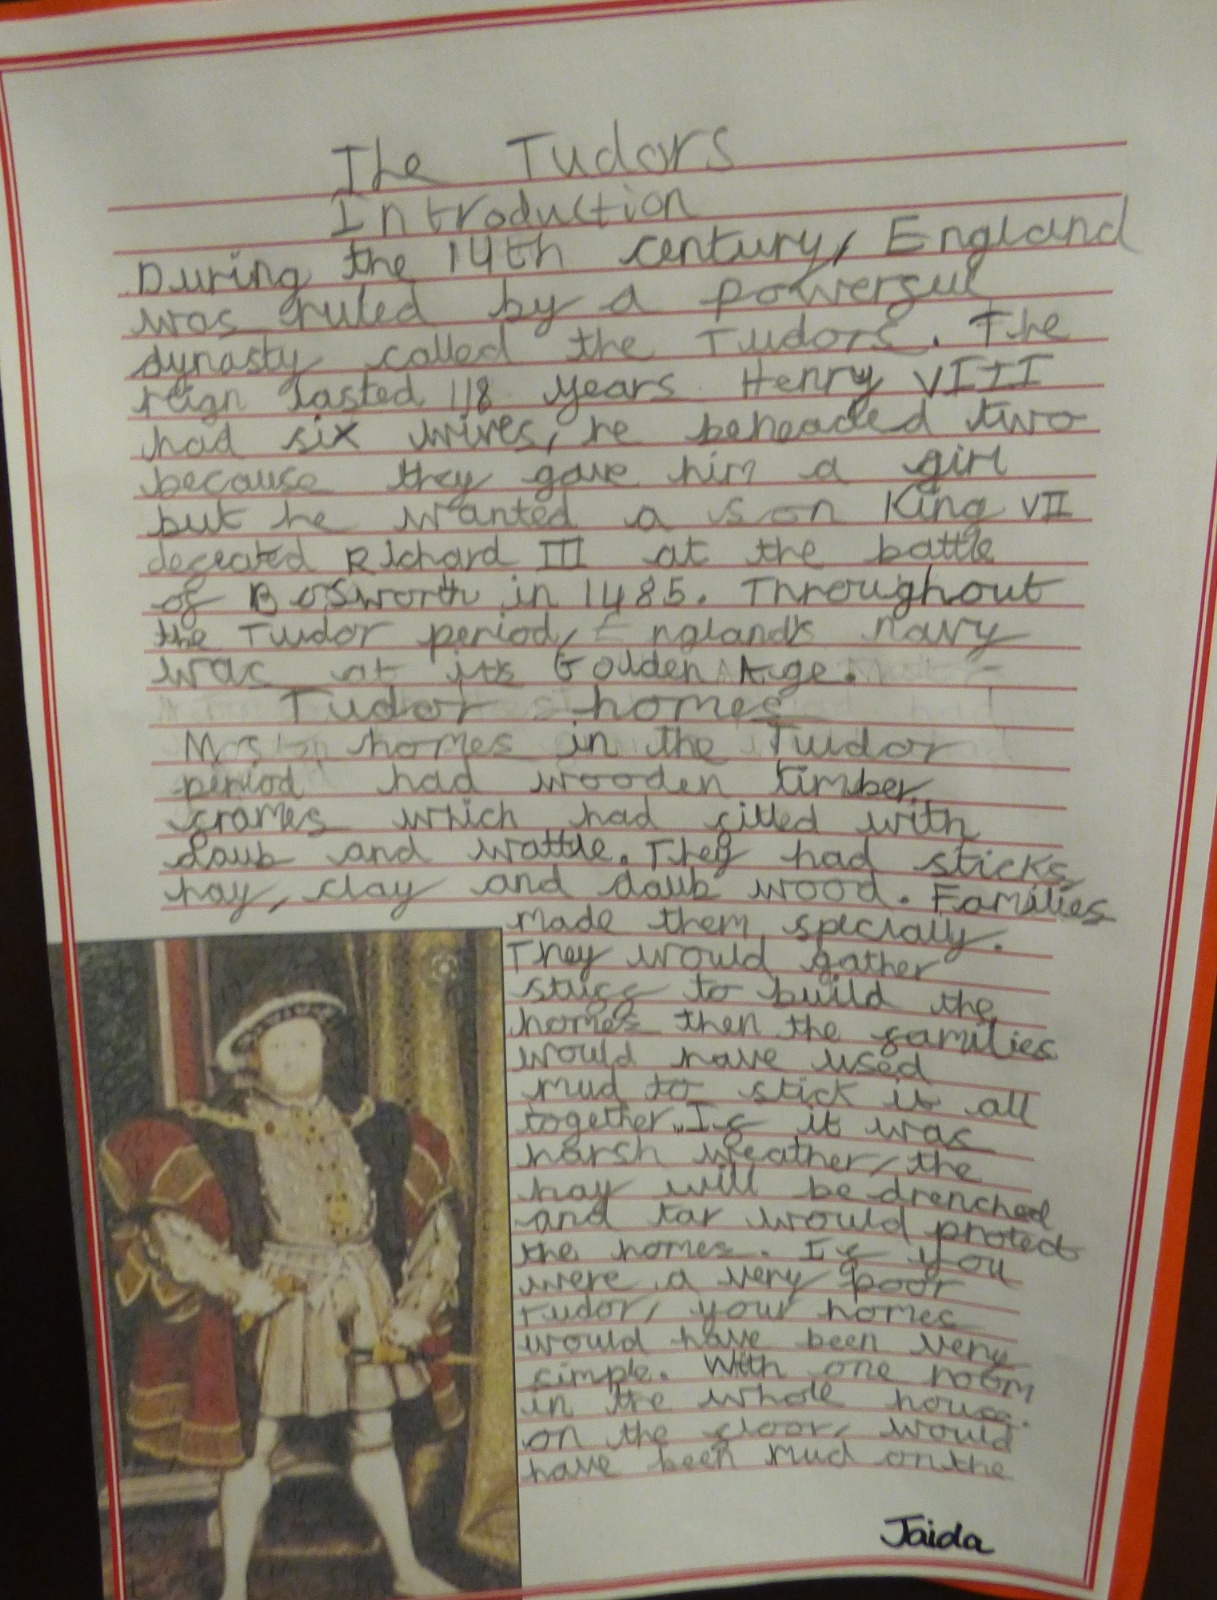 The Tudors
Introduction
During the 14th century, England
was ruled by a powerful
dynasty called the Tudors. The
reign lasted 118 years. Henry VIII
had six wives, he beheaded two
because they gave him a girl
but he wanted a son King VII
defeated Richard III at the battle
of Bosworth in 1485. Throughout
the Tudor period, England's navy
was at its Golden Age.
Tudor homes
Most homes in the Tudor
period had wooden timber
frames which had filled with
daub and wattle. They had sticks,
hay, clay and daub wood. Families
made them specially.
They would gather
stuff to build the
homes then the families
would have used
mud to stick it all
together. If it was
harsh weather, the
hay will be drenched
and tar would protect
the homes. If you
were a very poor
Tudor, your homes
would have been very
simple. With one room
in the whole house.
on the floor, would
have been mud on the
Jaida